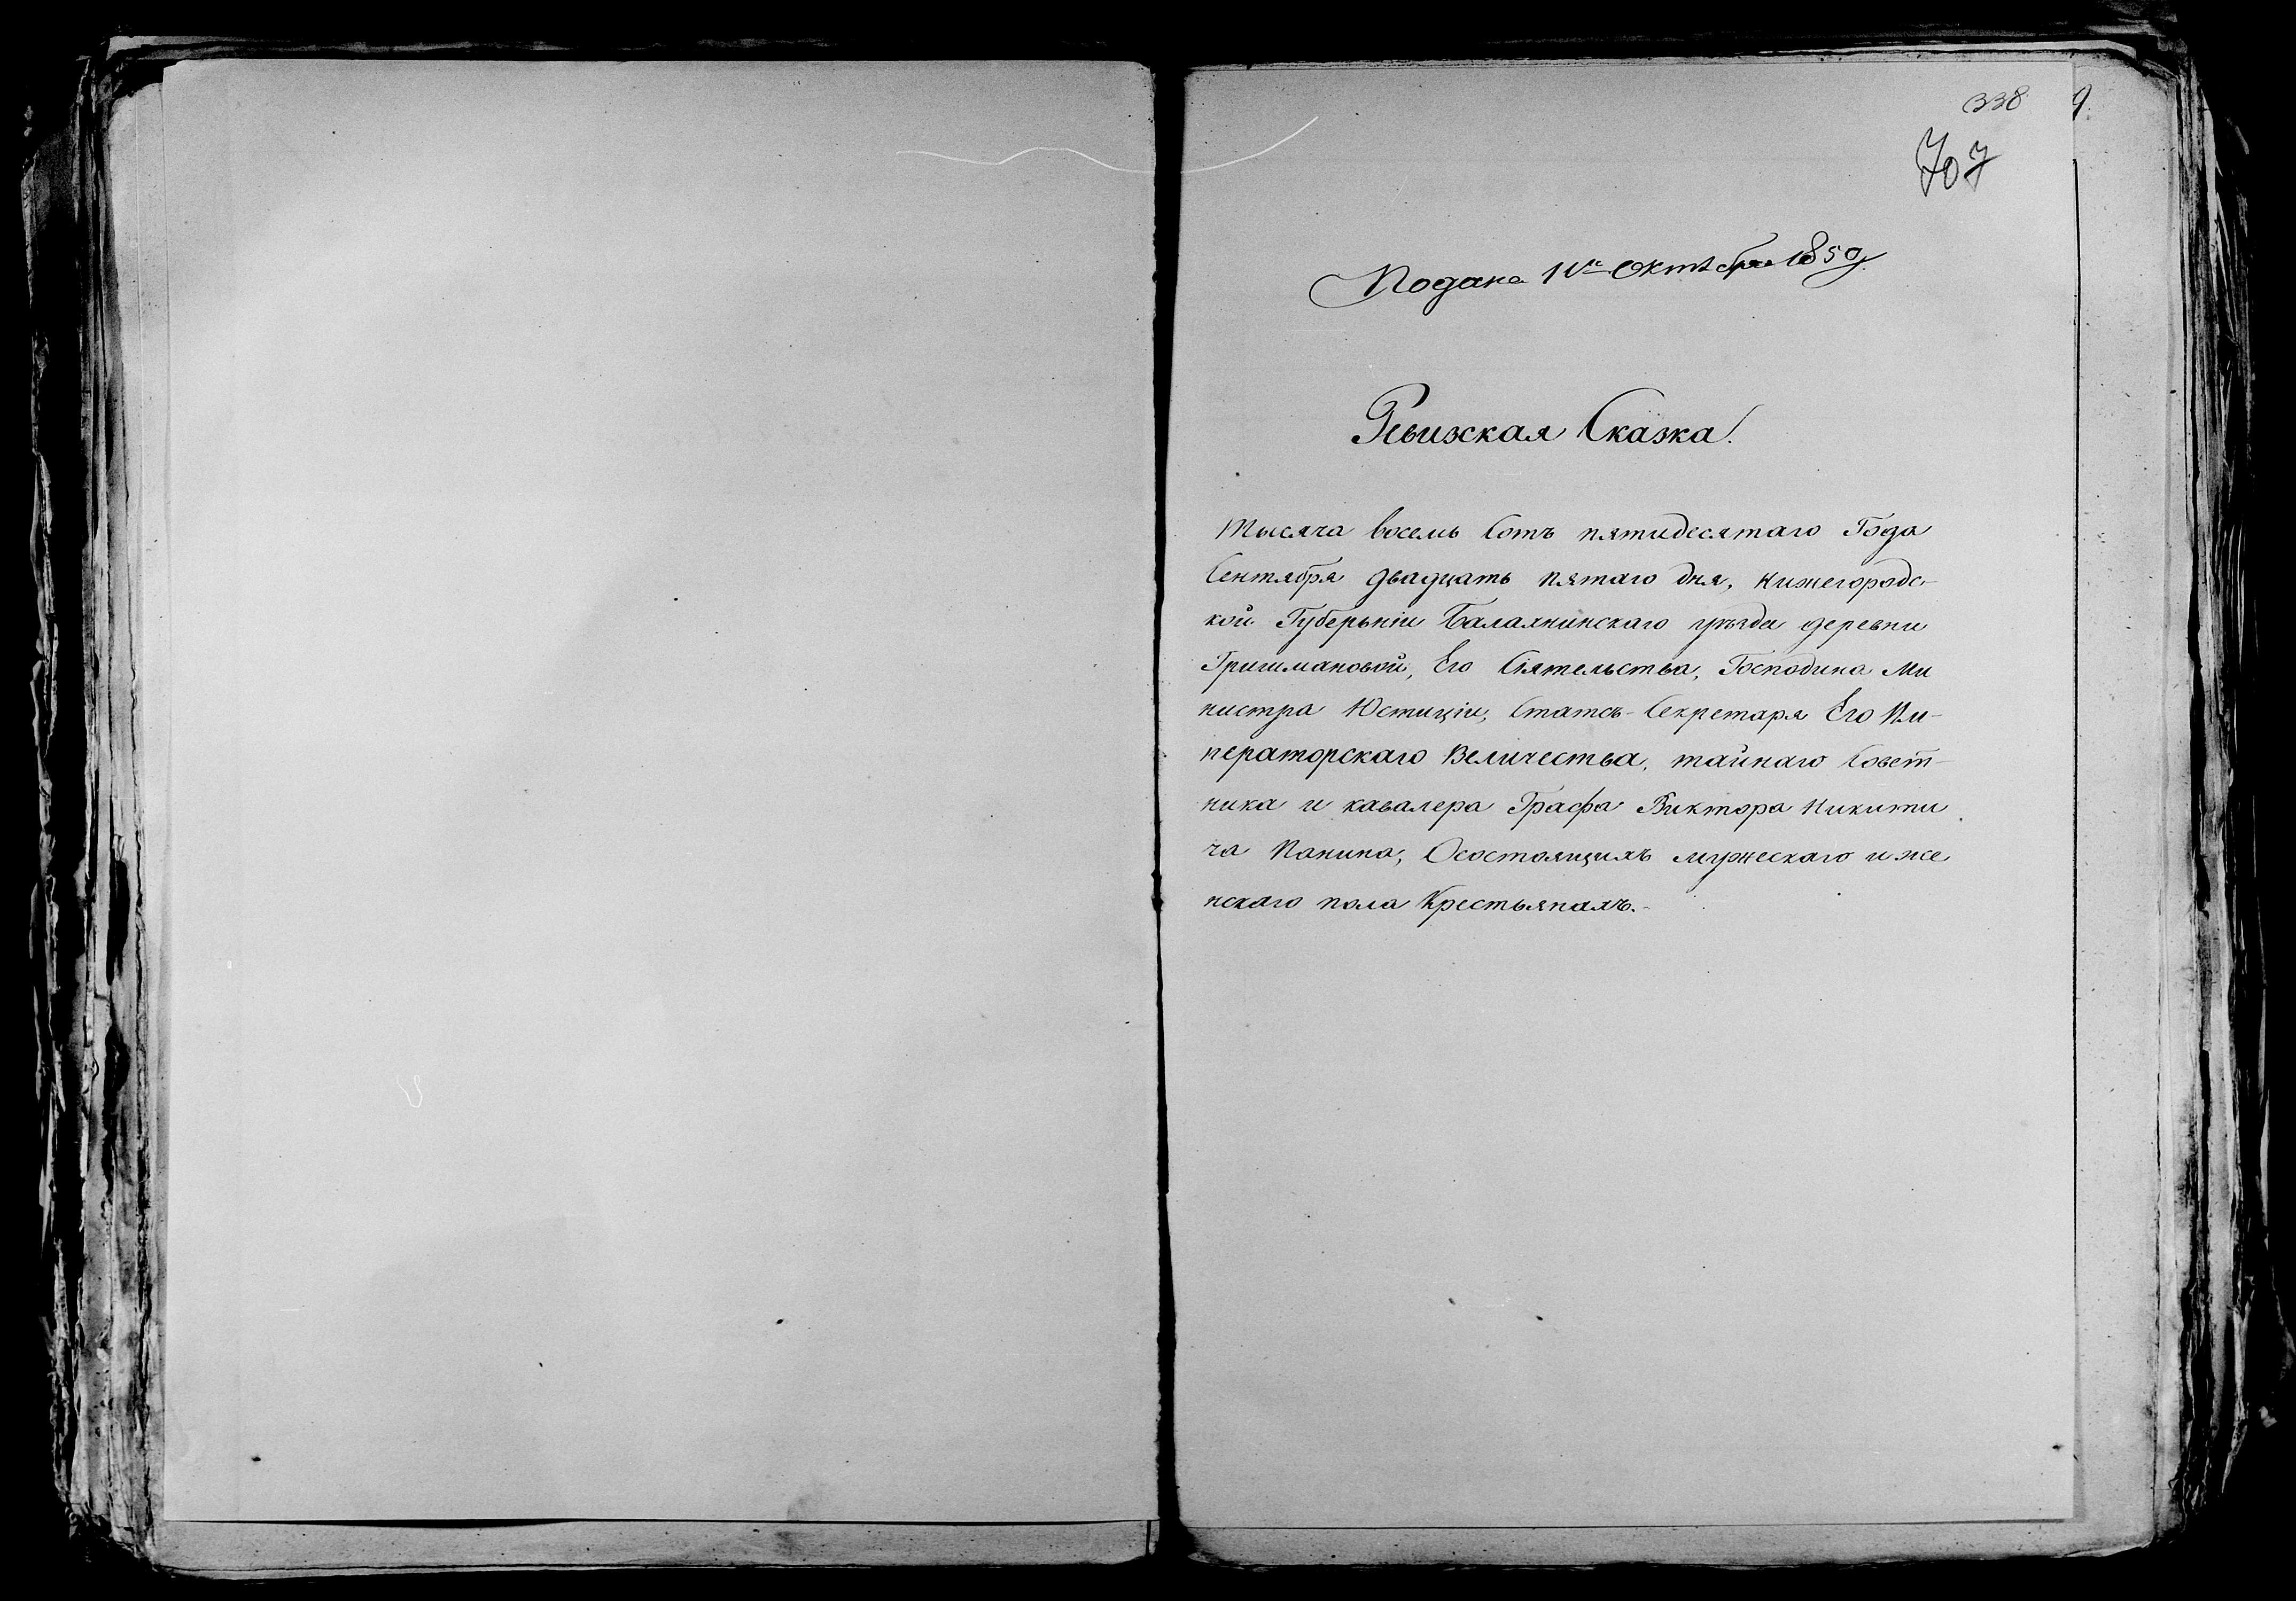 338
9.
707
Подана 11го Октября 1850 г.
Ревизская Сказка.
Тысяча восемь Сотъ пятидесятаго Года
Сентября двадцать пятаго дня, Нижегородс-
кой Губерніи Балахнинскаго уѣзда деревни
Гришмановой, Его Сіятельства, Господина Ми
нистра Юстиціи, Статсъ-Секретаря Его Им-
ператорскаго Величества, тайнаго Совет-
ника и кавалера Графа Виктора Никити
ча Панина, Осостоящихъ мужескаго и же
нскаго пола Крестьянахъ.